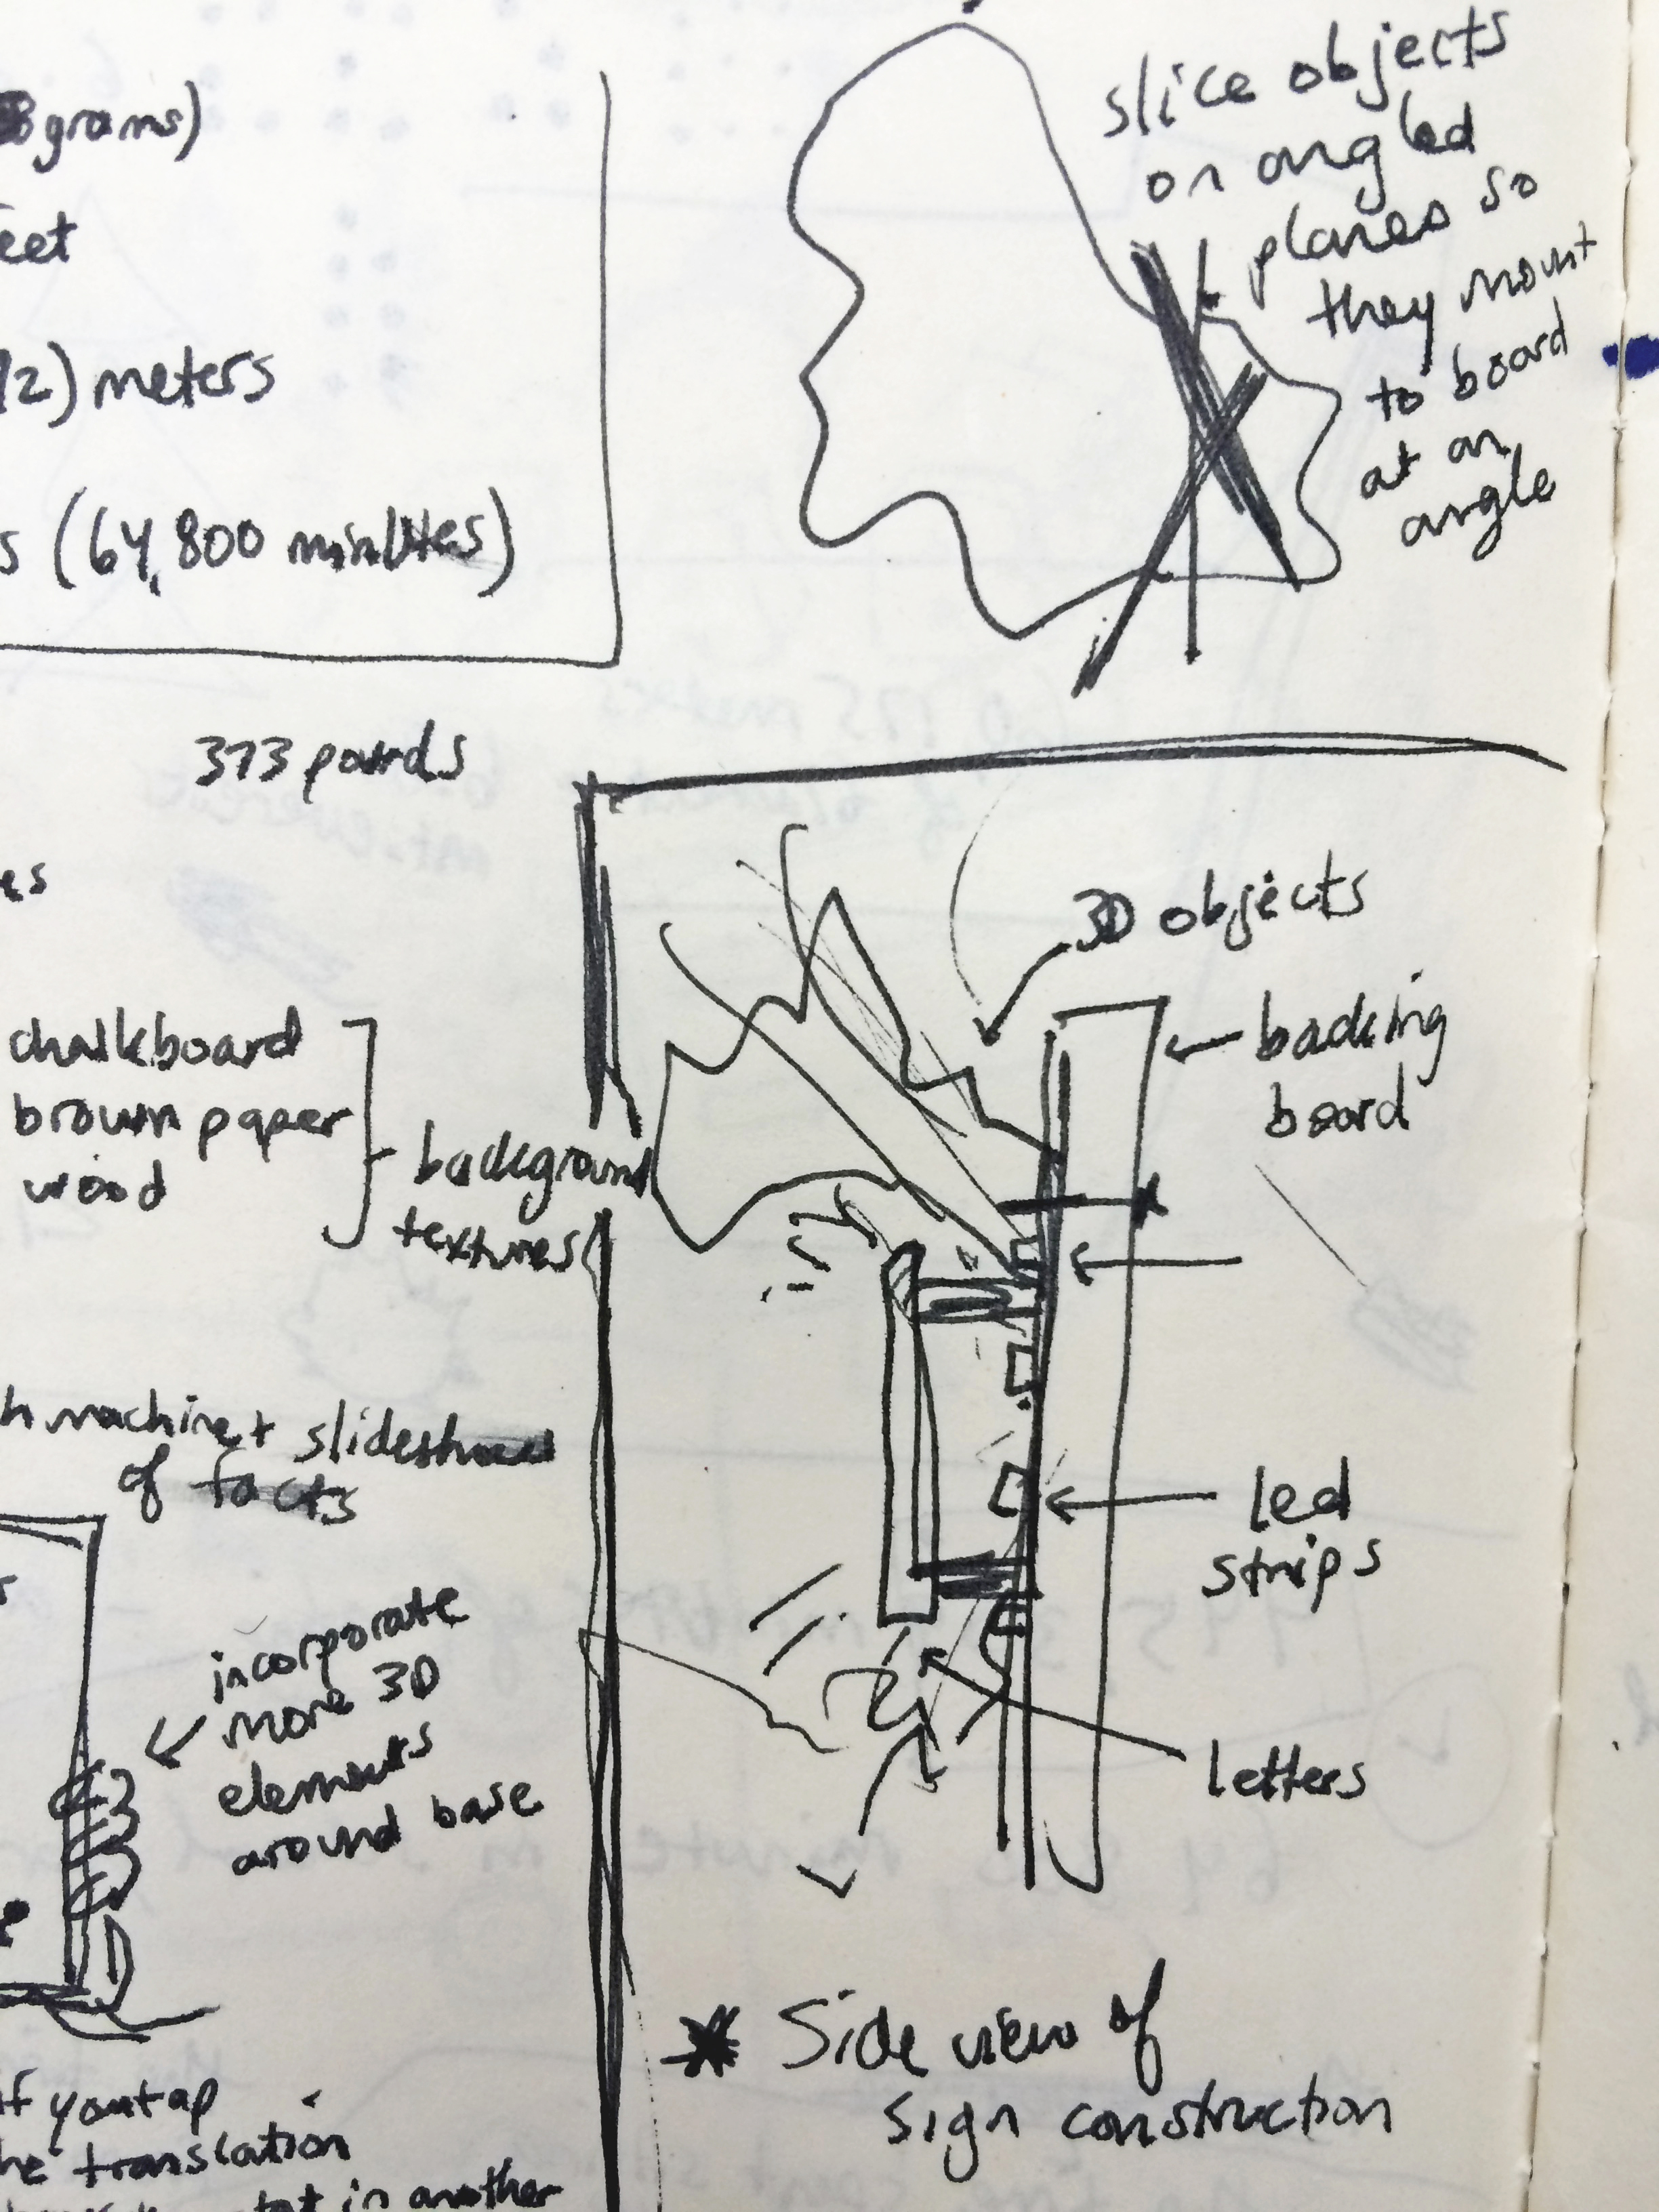 grams)
eet
/2) meters
s (64,800 minutes)
373 pounds
es
chalkboard
brown paper
wood
background
textures
h machine + slideshow
of facts
incorporate
more 3D
elements
around base
if you tap
he translation
in another
slice objects
on angled
planes so
they mount
to board
at an
angle
3D objects
backing
board
led
strips
letters
* Side view of
sign construction